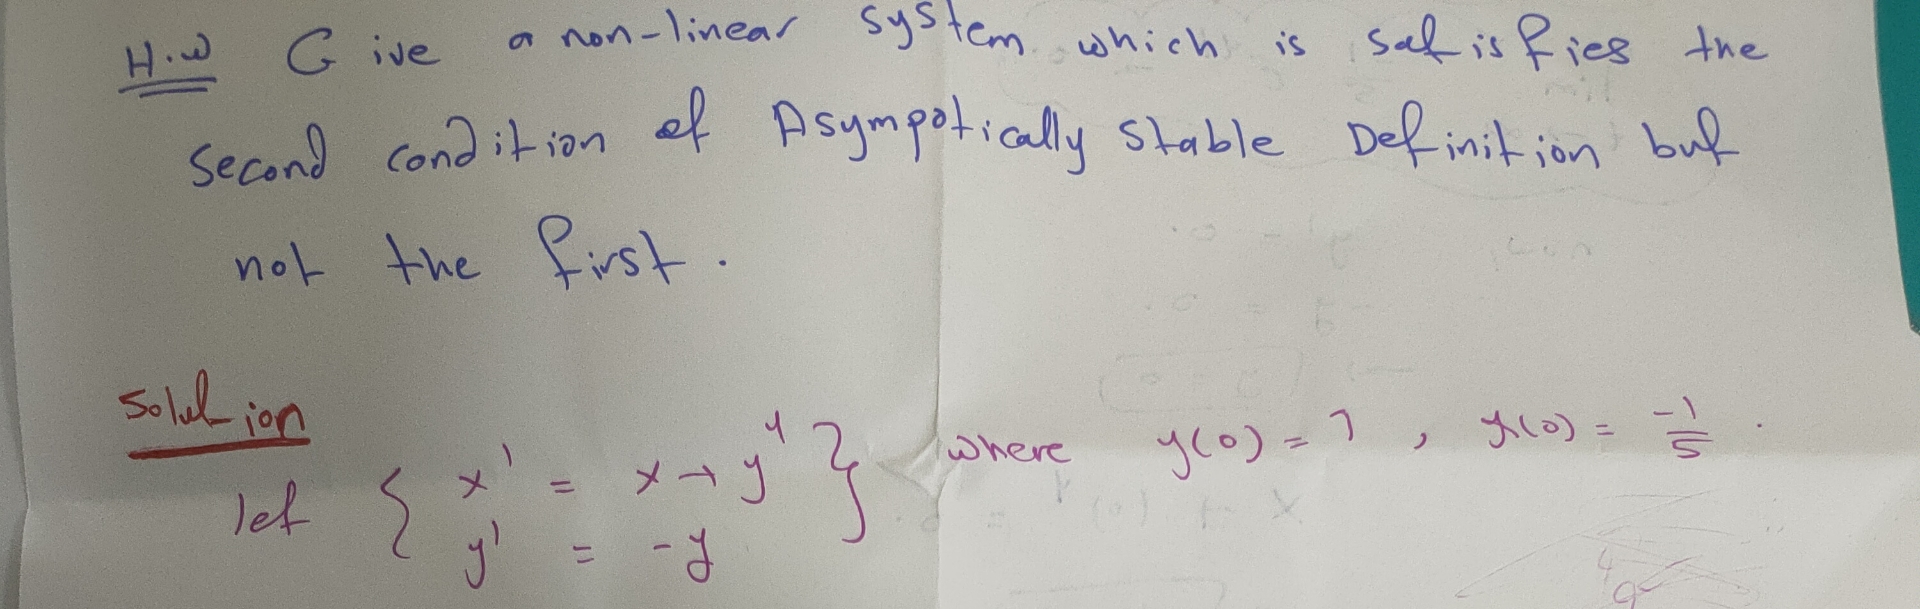 H.W Give a non-linear system which is satisfies the
second condition of Asympotically stable Definition but
not the first.
Solution
let { x' = x + y⁴ } where y(0) = 1 , x(0) = -1/5 .
y' = -y